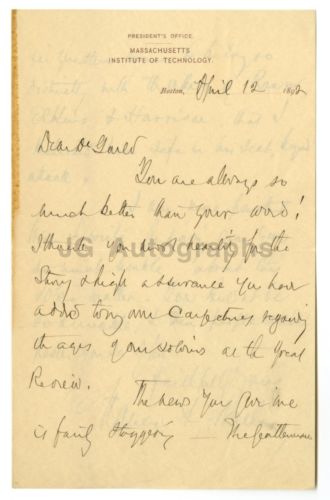 PRESIDENT'S OFFICE.
MASSACHUSETTS
INSTITUTE OF TECHNOLOGY.
Boston, April 12 1892
Dear Dr Gould
You are always so
much better than your word!
I thank you most heartily for the
JG Autographs
Story & high assurance you have
added to my own conjectures regarding
the ages of our soldiers at the Great
Review.
The news you give me
is fairly staggering — The gentleman